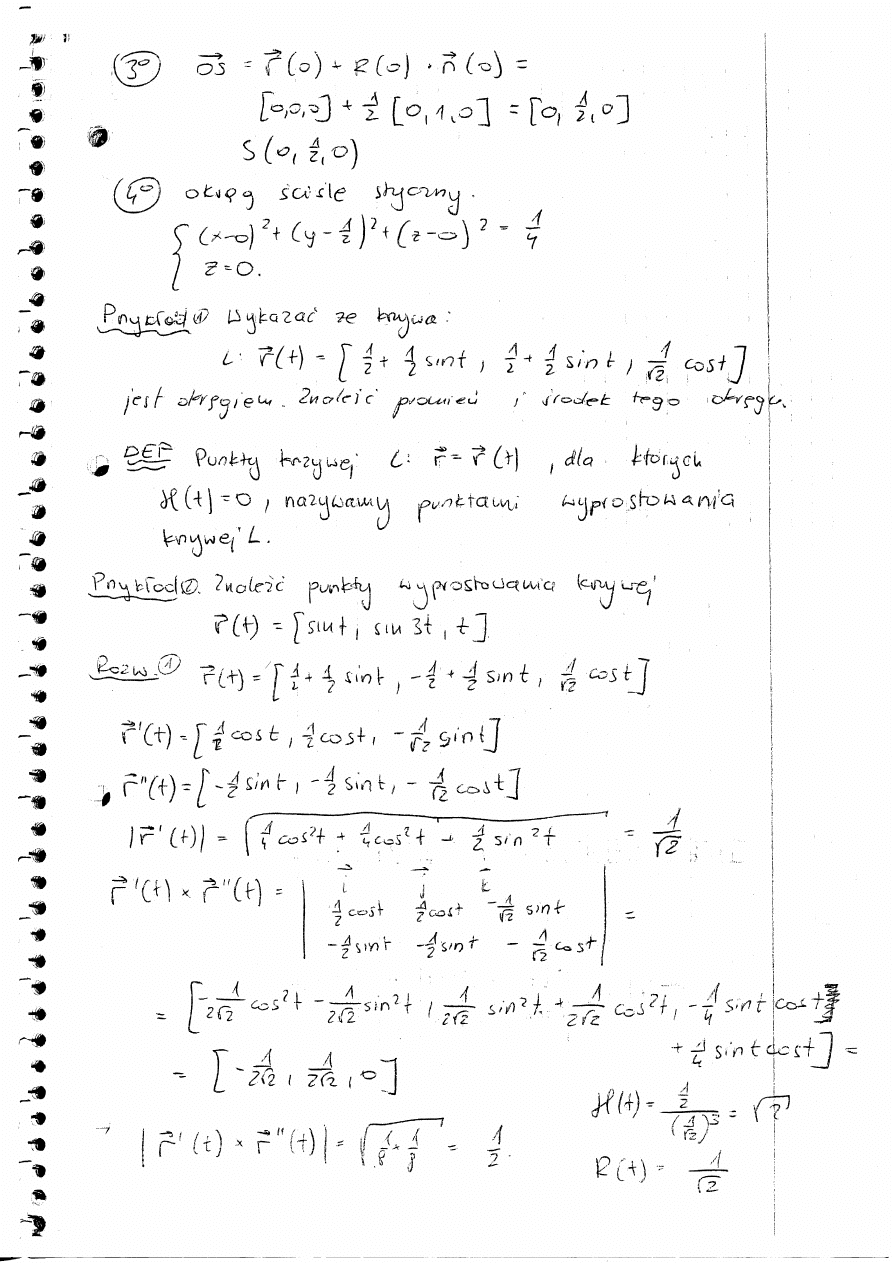 3° →OS = →r(0) + R(0) · →n(0) =
[0,0,0] + 1/2 [0,1,0] = [0, 1/2, 0]
S(0, 1/2, 0)
4° okręg ściśle styczny.
{ (x-0)² + (y - 1/2)² + (z-0)² = 1/4
z=0.
Przykład ① Wykazać ze krzywa:
L: →r(t) = [1/2 + 1/2 sint, 1/2 + 1/2 sint, 1/√2 cost]
jest okręgiem. Znaleźć promień i środek tego okręgu.
DEF Punkty krzywej L: →r = →r(t), dla których
ϰ(t)=0, nazywamy punktami wyprostowania
krzywej L.
Przykład ②. Znaleźć punkty wyprostowania krzywej
→r(t) = [sint, sin 3t, t]
Rozw. ① →r(t) = [1/2 + 1/2 sint, -1/2 + 1/2 sint, 1/√2 cost]
→r'(t) = [1/2 cost, 1/2 cost, -1/√2 sint]
→r''(t) = [-1/2 sint, -1/2 sint, - 1/√2 cost]
|→r'(t)| = √(1/4 cos²t + 1/4 cos²t + 1/2 sin²t) = 1/√2
→r'(t) × →r''(t) = | →i →j →k
1/2 cost 1/2 cost -1/√2 sint | =
-1/2 sint -1/2 sint - 1/√2 cost |
= [-1/2√2 cos²t - 1/2√2 sin²t, 1/2√2 sin²t + 1/2√2 cos²t, -1/4 sint cost
+ 1/4 sint cost] =
= [-1/2√2, 1/2√2, 0]
ϰ(t) = (1/2)/(1/√2)³ = √2
→ |→r'(t) × →r''(t)| = √(1/8 + 1/8) = 1/2.
R(t) = 1/√2